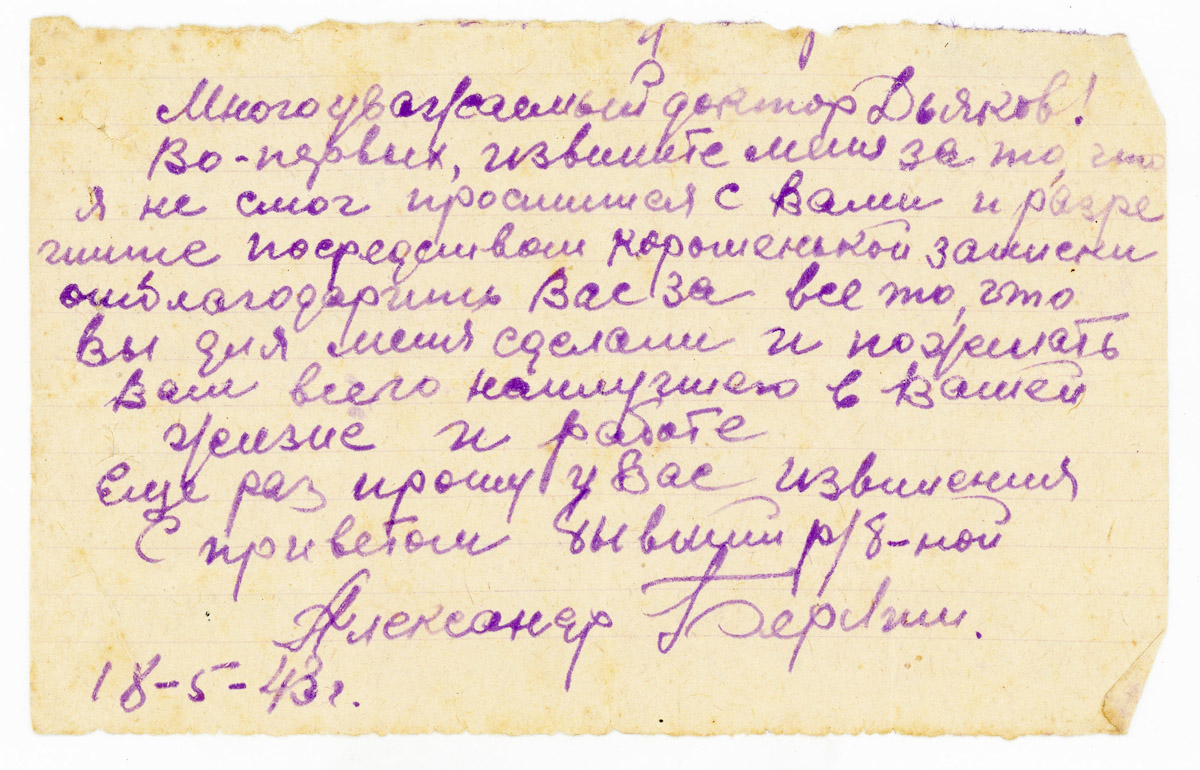 Многоуважаемый доктор Дьяков!
Во-первых, извините меня за то, что
я не смог проститься с Вами и разре
шите посредством коротенькой записки
отблагодарить Вас за все то, что
Вы для меня сделали и пожелать
Вам всего наилучшего в Вашей
жизне и работе
Еще раз прошу у Вас извинения
С приветом бывший р/б-ной
Александр
18-5-43 г.